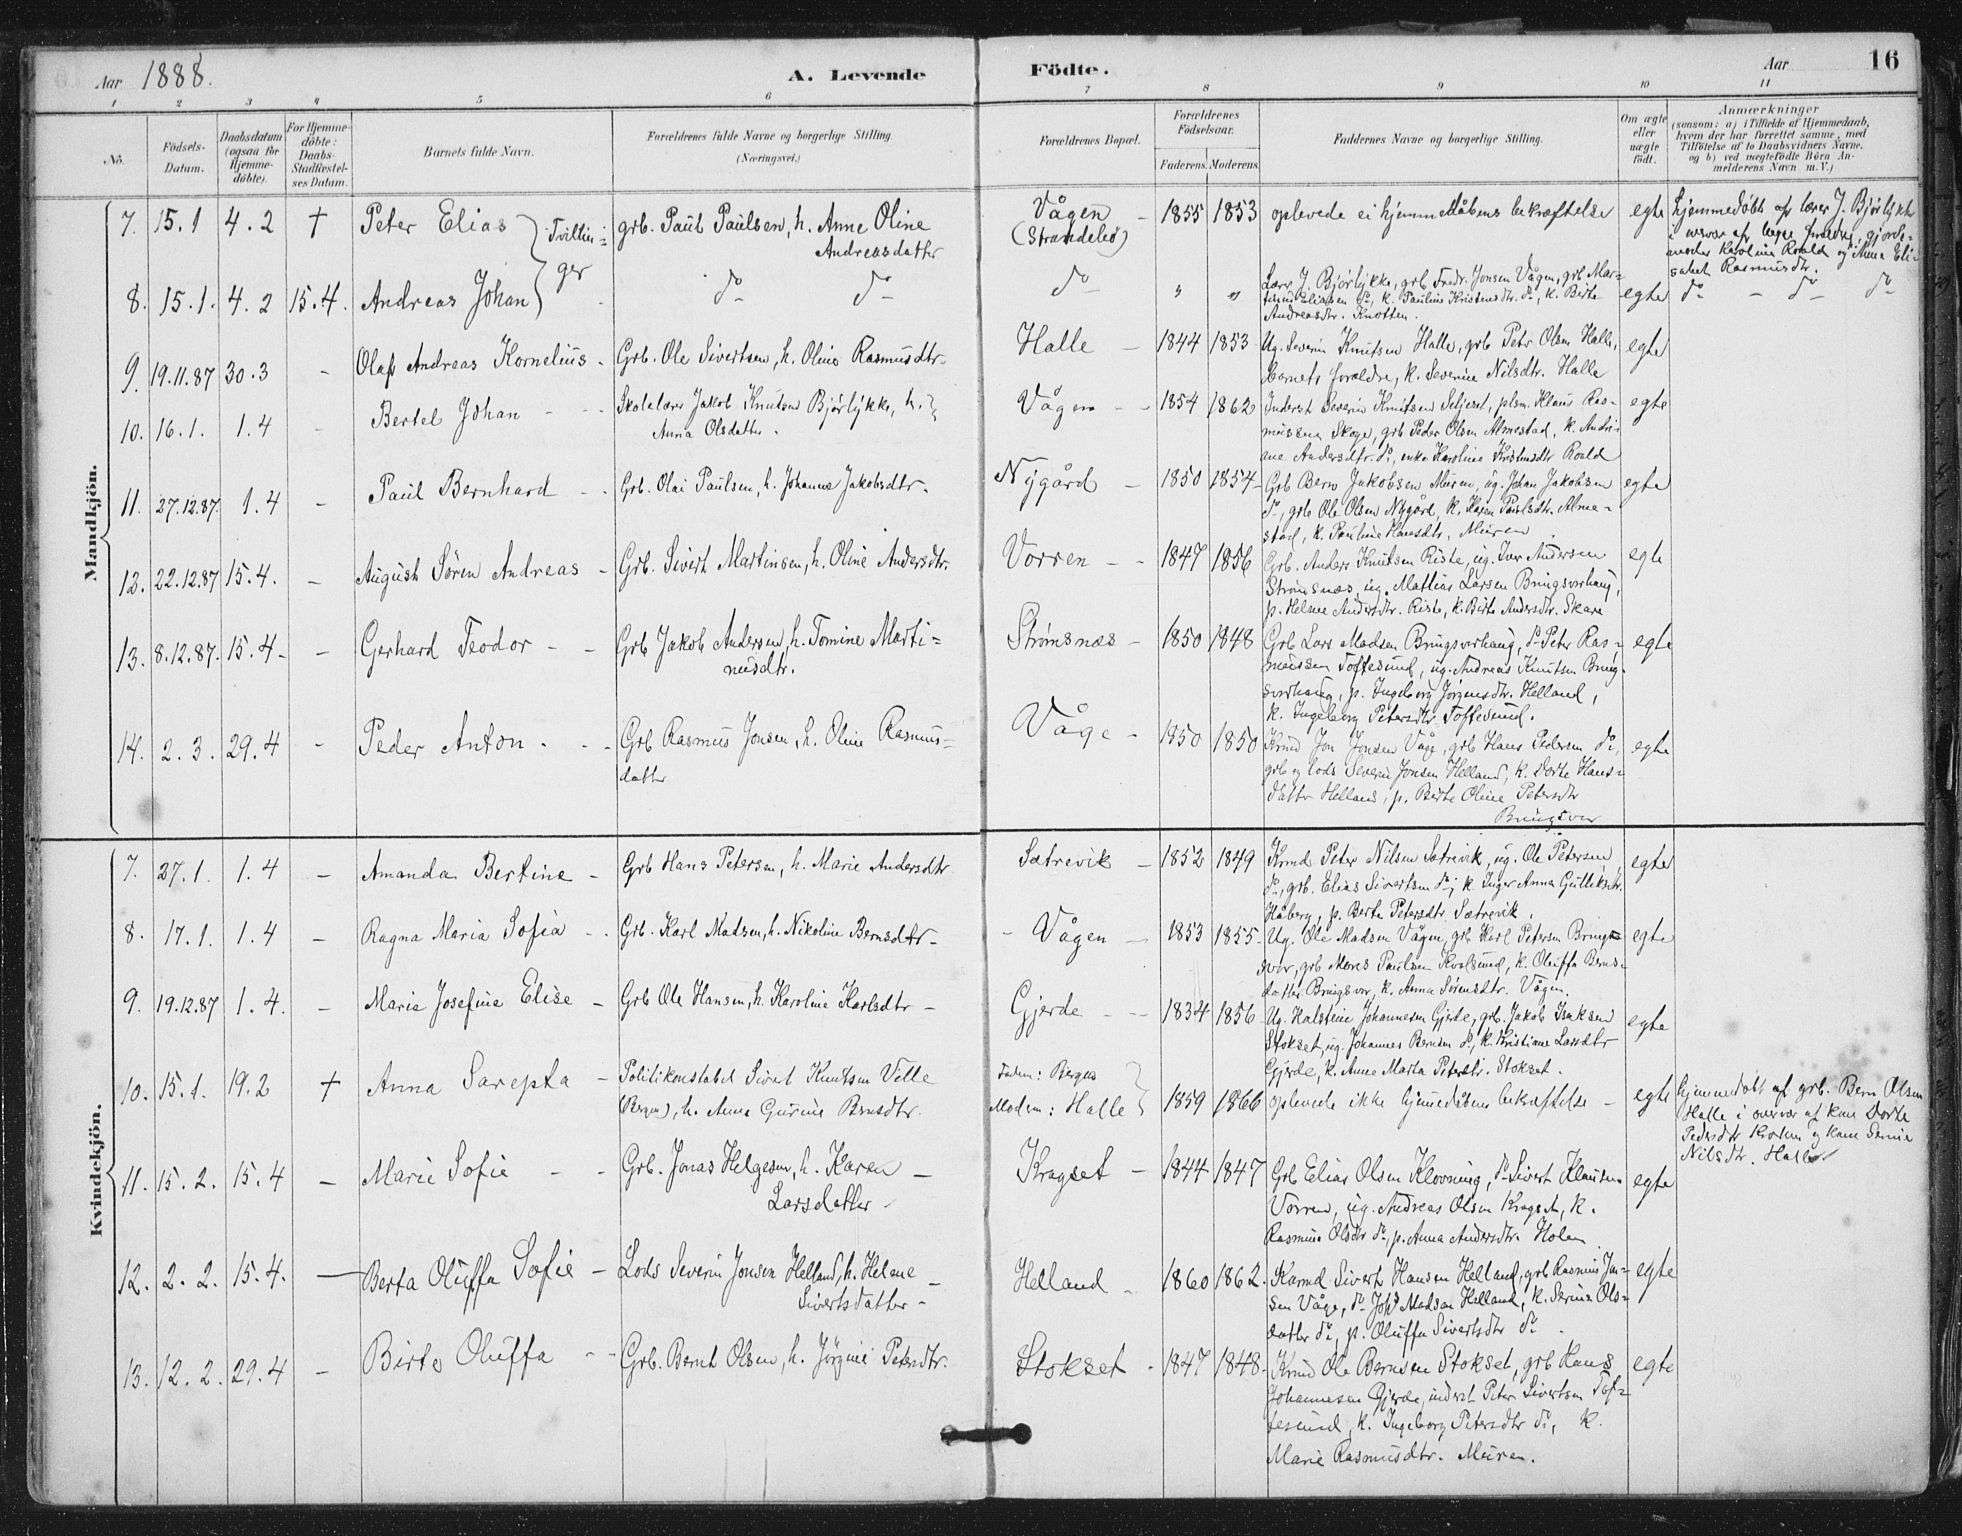 Aar 1888. A. Levende Födte. Aar 16
1 2 3 4 5 6 7 8 9 10 11
No.
Födsels-
Datum.
Daabsdatum
(ogsaa for
Hjemme-
döbte).
For Hjemme-
döbte:
Daabs-
Stadfæstel-
ses Datum.
Barnets fulde Navn.
Forældrenes fulde Navne og borgerlige Stilling.
(Næringsvei.)
Forældrenes Bopæl.
Forældrenes
Födselsaar.
Faderens. Moderens.
Faddernes Navne og borgerlige Stilling.
Om ægte
eller
uægte
født.
Anmærkninger
(saasom: a) i Tilfælde af Hjemmedaab,
hvem der har forrettet samme, med
Tilföielse af to Daabsvidners Navne,
og b) ved uægtefödte Börn An-
melderens Navn m. V.)
Mandkjön.
7. 15.1 4.2 † Peter Elias Tvillin=
ger
grb. Paul Paulsen, h. Anne Oline
Andreasdatter
Vågen
(Strandebø)
1855 1853 oplevede ei hjemmedåbens bekræftelse egte
hjemmedøbt af lærer J. Bjørlykke
i overvær af begge forældre, gjorde-
moder Karoline Roald og Anna Eli-
sabet Rasmusdtr.
8. 15.1. 4.2 15.4. Andreas Johan do do do " "
Lærer J. Bjørlykke, grb Fredr. Jonsen Vågen, grb Mar-
tinus Eliasen do, k. Pauline Kristensdtr. do, k. Birte
Andreasdtr. Knotten.
egte do - do do
9. 19.11.87 30.3 - Olaf Andreas Kornelius - Grb. Ole Sivertsen, h. Oline Rasmusdtr. Halle - 1844 1853
Ug. Severin Knutsen Halle, grb Petr Olsen Halle,
barnets forældre, k. Severine Nilsdtr. Halle
egte
10. 16.1. 1.4 - Bertel Johan - -
Skolelærer Jakob Knutsen Bjørlykke, h.
Anna Olsdatter.
Vågen - - 1854 1862
Inderst Severin Knutsen Seljeset, plsm. Klaus Ras-
mussen Skoge, grb Peder Olsen Almestad, k. Andri-
ne Andersdtr. do, enke Karoline Kristensdtr Roald
egte
11. 27.12.87. 1.4 - Paul Bernhard - - Grb. Olai Paulsen, h. Johanna Jakobsdtr. Nygård - 1850 1854
Grb Bern Jakobsen Muren, ug. Johan Jakobsen
do, grb Ole Olsen Nygård, k. Karen Paulsdtr. Alme-
stad, k. Pauline Hansdtr. Muren
egte
12. 22.12.87 15.4. - August Søren Andreas - Grb. Sivert Martinsen, h. Oline Andersdtr. Vorren - - 1847 1856
Grb. Anders Knutsen Riste, ug. Iver Andersen
Strømsnæs, ug. Mathias Larsen Bringsvorhaug,
p. Helene Andersdtr. Riste, k. Birte Andersdtr. Skare
egte
13. 8.12.87. 15.4. - Gerhard Teodor - -
Grb Jakob Andersen, h. Tomine Marti=
nusdtr.
Strømsnæs - 1850 1848
Grb Lars Madsen Bringsvorhaug, do Peter Ras-
mussen Toftesund, ug. Andreas Knutsen Bring-
svorhaug, p. Ingeborg Jørgensdtr. Helland,
k. Ingeborg Petersdtr. Toftesund.
egte
14. 2.3. 29.4 - Peder Anton - -
Grb Rasmus Jonsen, h. Oline Rasmus=
datter
Våge - 1850 1850
Krmd Jon Jonsen Våge, grb Hans Pedersen do,
grb og lods Severin Jonsen Helland, k. Dorte Hans-
datter Helland, p. Birte Oline Petersdtr
Bringsvor
egte
Kvindekjön.
7. 27.1. 1.4 - Amanda Bertine - Grb Hans Petersen, h. Marie Andersdtr. Sætrevik - 1852 1849
Krmd Peter Nilsen Sætrevik, ug. Ole Petersen
do, grb. Elias Sivertsen do, k. Inger Anna Gulliksdtr.
Håberg, p. Berte Petersdtr. Sætrevik.
egte
8. 17.1. 1.4 - Ragna Maria Sofia - Grb. Karl Madsen, h. Nikoline Bernsdtr - - Vågen - 1853 1855
Ug. Ole Madsen Vågen, grb Karl Petersen Brings-
vor, grb Mons Paulsen Kvalsund, k. Oluffa Berns-
datter Bringsvor, k. Anna Sørensdtr. Vågen.
egte
9. 19.12.87 1.4. - Maria Josefine Elise - Grb Ole Hansen, h. Karoline Karlsdtr - Gjerde - - 1834 1856
Ug. Halstein Johannesen Gjerde, grb. Jakob Isaksen
Stokset, ug. Johannes Bernsen do, k. Kristiane Larsdtr
Gjerde, k. Anne Marta Petersdtr. Stokset.
egte
10. 15.1. 19.2 † Anna Sarepta -
Politikonstabel Sivert Knutsen Velle
(Bergen), h. Anna Gurine Bernsdtr.
Faderen: Bergen
Moderen: Halle
1859 1866 oplevede ikke hjemmedåbens bekræftelse - egte
hjemmedøbt af grb. Bern Olsen
Halle i overvær af kone Dorte
Pedersdtr og kone Serine
Nilsdtr. Halle
11. 15.2. 15.4 - Marie Sofie - -
Grb. Jonas Helgesen, h. Karen -
Larsdatter -
Kragset - 1844 1847
Grb Elias Olsen Klovning, do Sivert Klausen
Vorren, ug. Andreas Olsen Kragset, k.
Rasmine Olsdtr do, p. Anna Andersdtr. Holen
egte
12. 2.2. 15.4. - Berta Oluffa Sofie -
Lods Severin Jonsen Helland, h. Helene -
Sivertsdatter -
Helland - 1860 1862
Kårmd Sivert Hansen Helland, grb Rasmus Jon-
sen Våge, do Johs Madsen Helland, k. Serine Ols-
datter do, p. Oluffa Sivertsdtr do.
egte
13. 12.2. 29.4 - Birte Oluffa - - Grb. Bernt Olsen, h. Jørgine Petersdtr. Stokset - 1847 1848
Krmd Ole Bernsen Stokset, grb Hans
Johannesen Gjerde, inderst Peter Sivertsen Tof-
tesund, k. Ingeborg Petersdtr do, k.
Marie Rasmusdtr. Muren.
egte